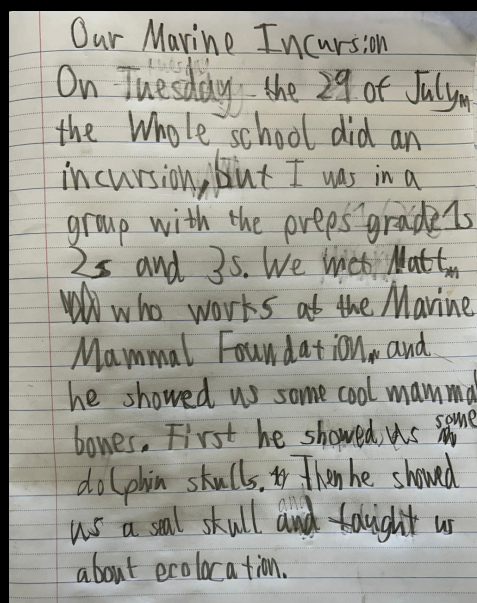 Our Marine Incursion
On Tuesday the 29 of July
the Whole school did an
incursion, but I was in a
group with the preps grade 1s
2s and 3s. We met Matt
who works at the Marine
Mammal Foundation, and
he showed us some cool mammal
bones. First he showed us some
dolphin skulls. Then he showed
us a seal skull and taught us
about ecolocation.